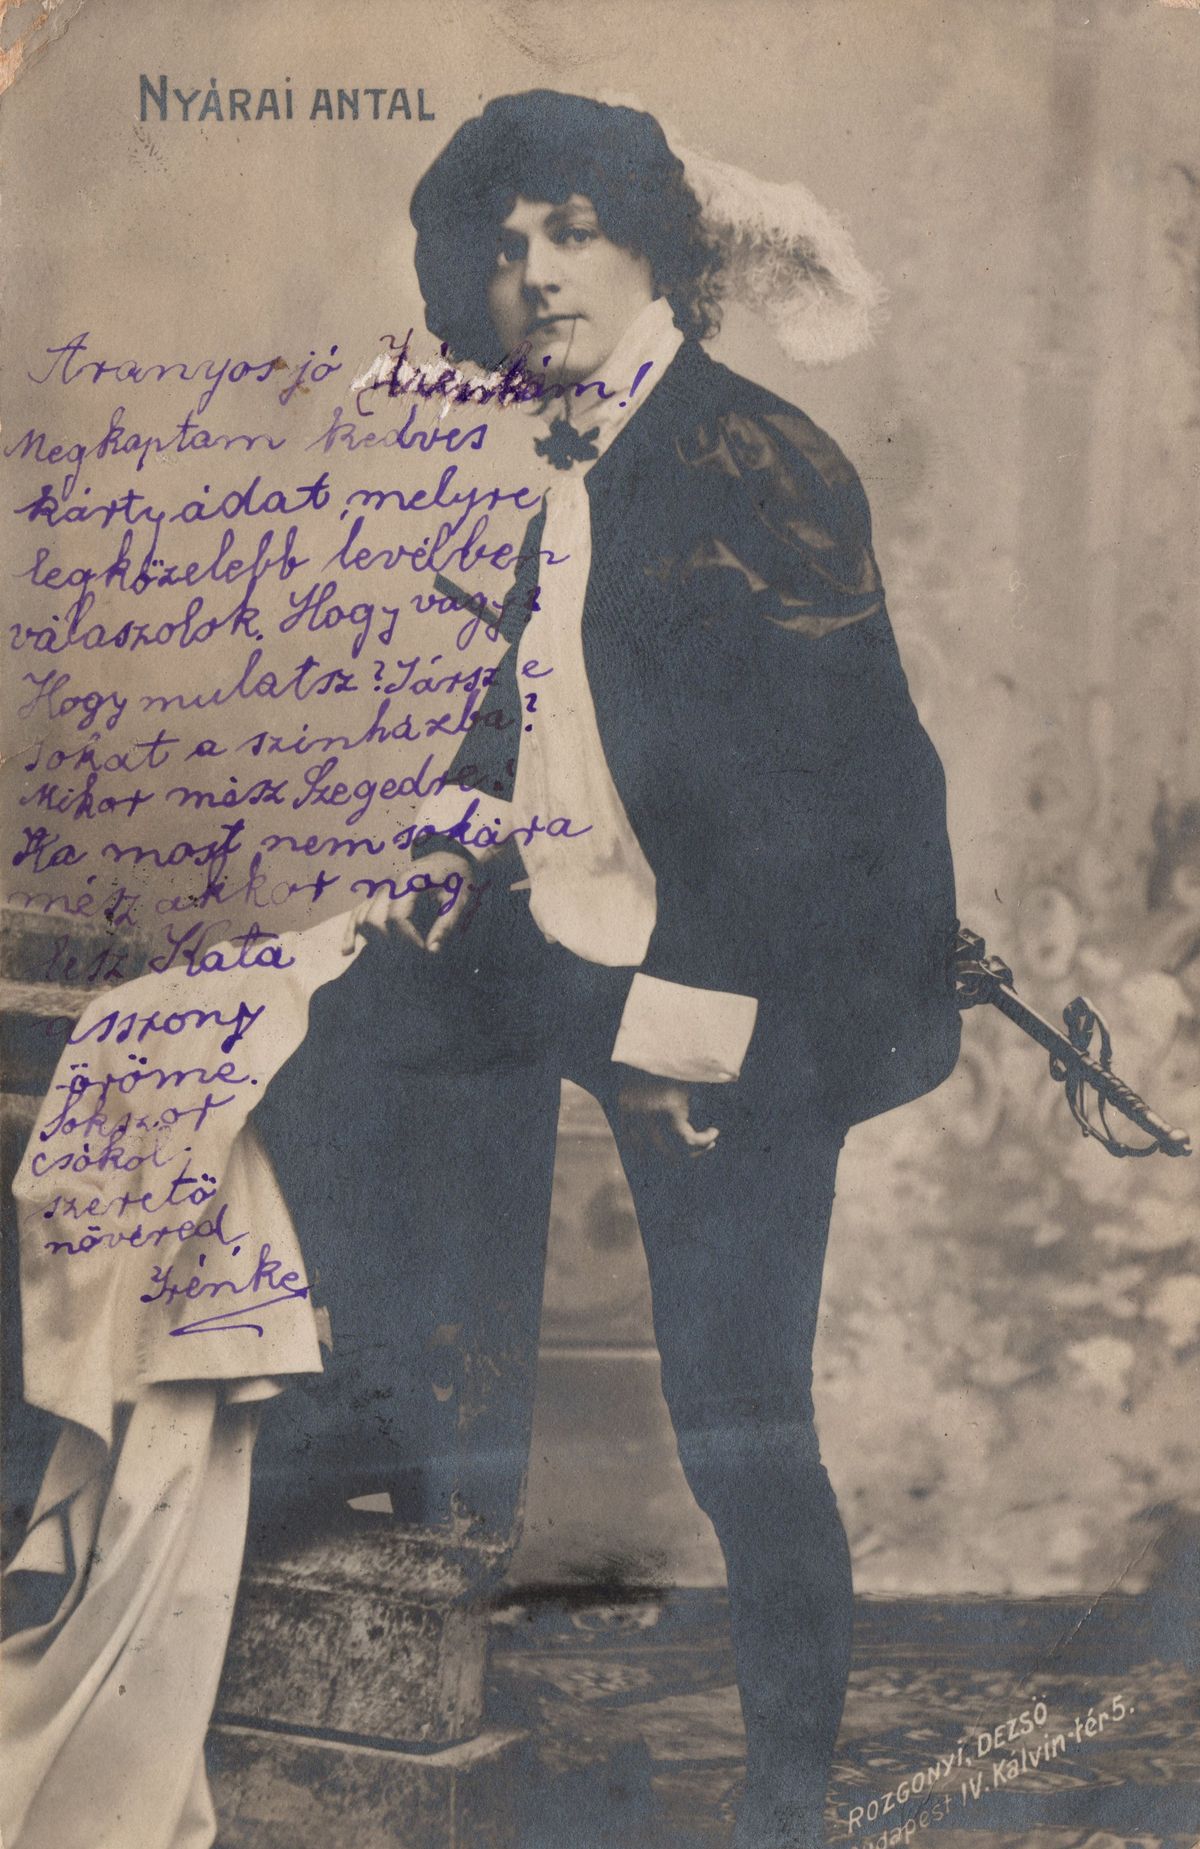 NYÁRAI ANTAL
Aranyos jó Irénkám!
Megkaptam kedves
kártyádat, melyre
legközelebb levélben
válaszolok. Hogy vagy?
Hogy mulatsz? Jársz e
sokat a szinházba?
Mikor mész Szegedre?
Ha most nem sokára
mész akkor nagy
lesz Kata
asszony
öröme.
Sokszor
csókol
szerető
nővéred
Irénke
ROZGONYI, DEZSŐ
Budapest IV. Kálvin-tér 5.